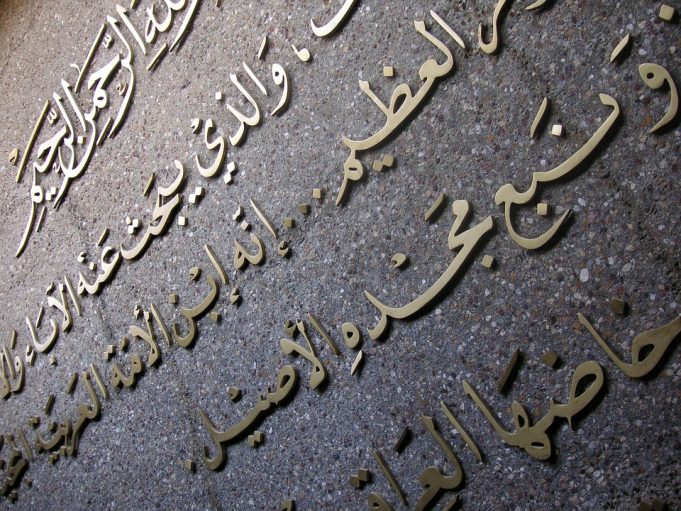 الله الرَّحْمٰنِ الرَّحِيْمِ
، وَالَّذِيْ يبحث عَنْهُ الآبَاء
العظيم ... إنّه ابْن الأمّة العَرَبيَّة
وَنَبع مجْدهِ الأصيْل.
مخاضهَا